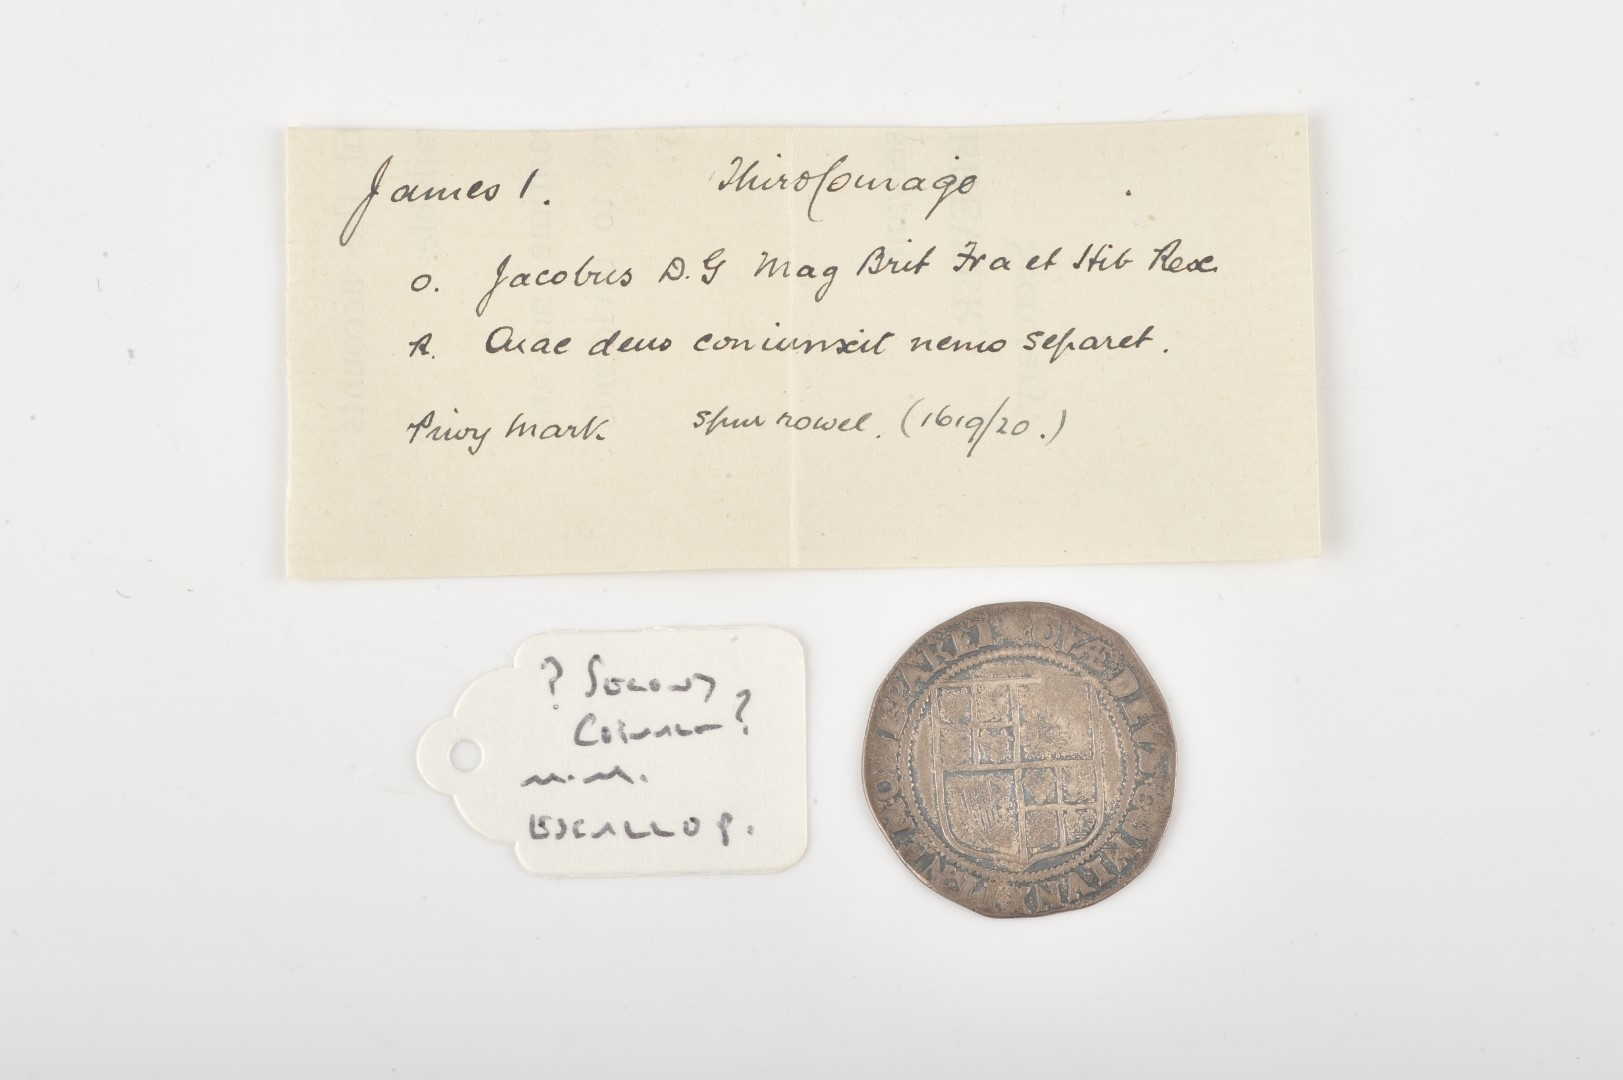 James I. Third Coinage
O. Jacobus D.G Mag Brit Fra et Hib Rex
R. Quae deus coniunxit nemo separet.
Privy Mark spur rowel. (1619/20.)
? SECOND
COINAGE?
M.M.
ESCALLOP.
QVÆ DEVS